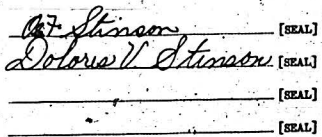 Stinson [SEAL]
Dolores V Stinson [SEAL]
[SEAL]
[SEAL]